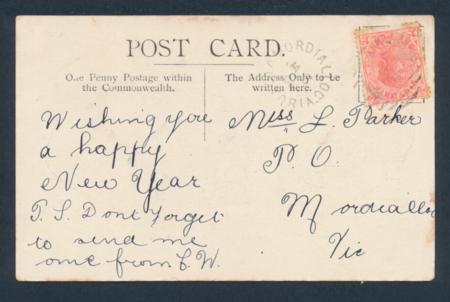 POST CARD.
One Penny Postage within
the Commonwealth.
The Address Only to be
written here.
Wishing you
a happy
New Year
P.S. Dont Forget
to send me
one from E.W.
Miss L. Parker
P.O.
Mordialloc
Vic